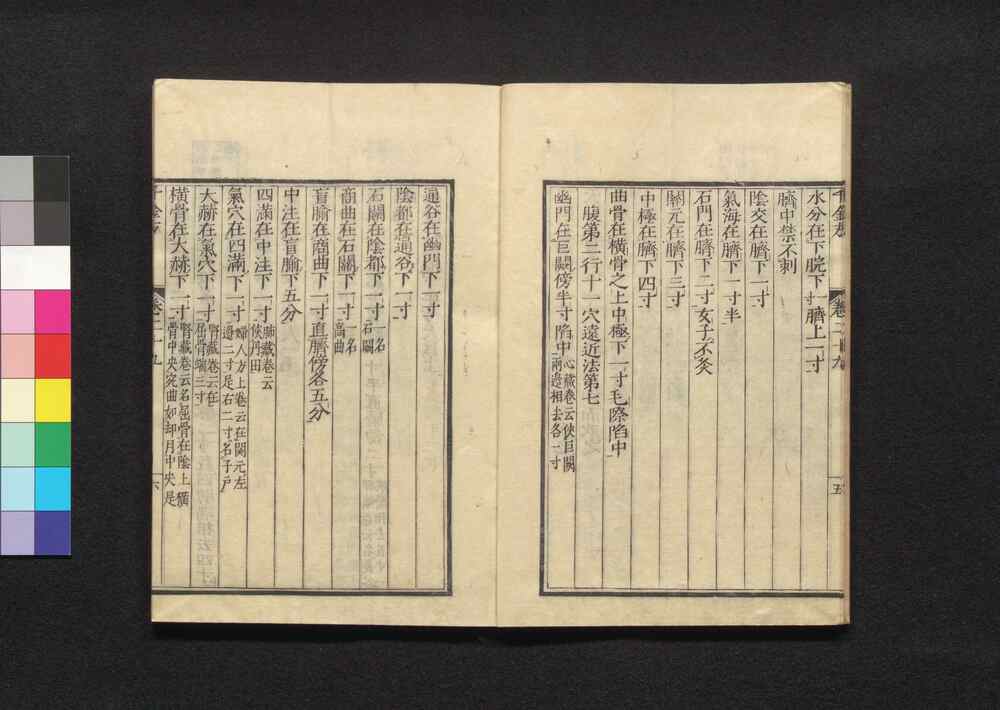 水分在下脘下一寸臍上一寸
臍中禁不刺
陰交在臍下一寸
氣海在臍下一寸半
石門在臍下二寸女子不灸
關元在臍下三寸
中極在臍下四寸
曲骨在橫骨之上中極下一寸毛際陷中
腹第二行十一穴遠近法第七
幽門在巨闕傍半寸陷中心藏卷云俠巨闕兩邊相去各一寸
五
通谷在幽門下一寸
陰都在通谷下一寸
石關在陰都下一寸一名石闕
商曲在石關下一寸一名高曲
肓腧在商曲下一寸直臍傍各五分
中注在肓腧下五分
四滿在中注下一寸肺藏卷云俠丹田
氣穴在四滿下一寸婦人方上卷云在關元左邊二寸是右二寸名子戶
大赫在氣穴下一寸腎藏卷云在屈骨端三寸
橫骨在大赫下一寸腎藏卷云名屈骨在陰上橫骨中央宛曲如却月中央是
卷二十九
六